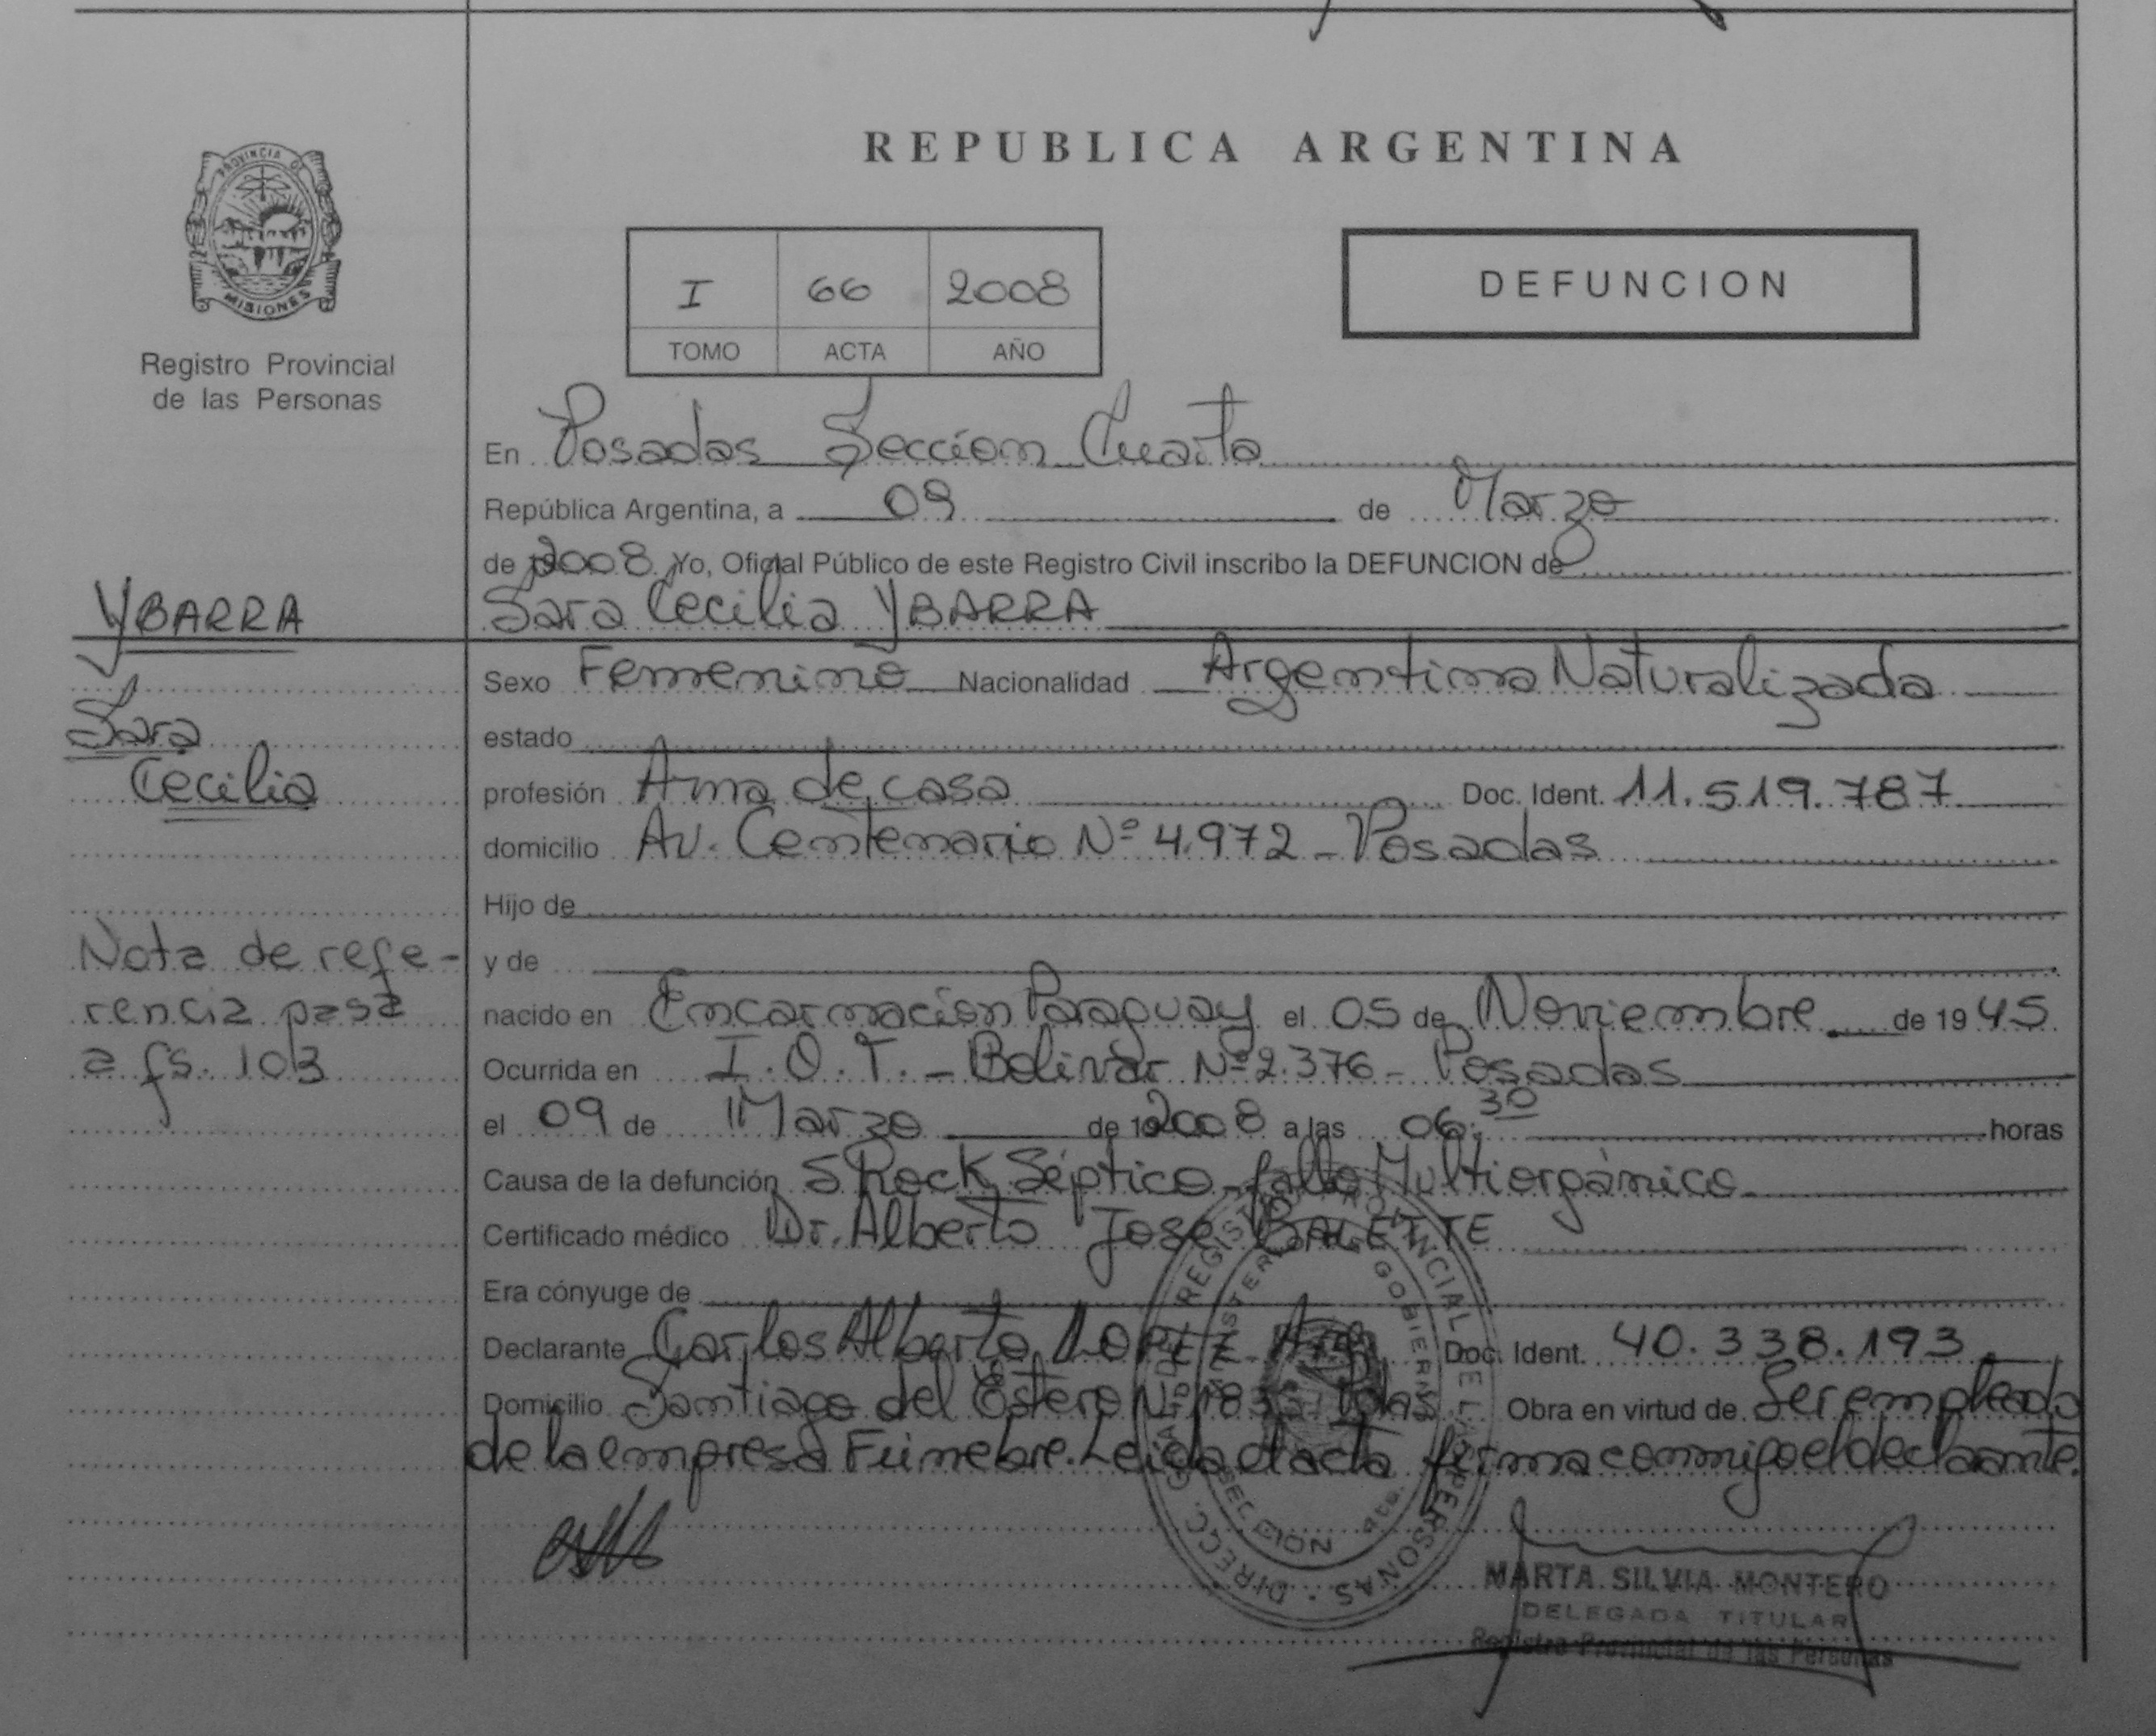 REPUBLICA ARGENTINA
PROVINCIA DE
MISIONES
Registro Provincial
de las Personas
I 66 2008
TOMO ACTA AÑO
DEFUNCION
En Posadas Seccion Cuarta
República Argentina, a 09 de Marzo
de 2008 Yo, Oficial Público de este Registro Civil inscribo la DEFUNCION de
Sara Cecilia YBARRA
YBARRA
Sara
Cecilia
Nota de refe-
rencia pasa
a fs. 103
Sexo Femenino Nacionalidad Argentina Naturalizada
estado
profesión Ama de casa Doc. Ident. 11.519.787
domicilio Av. Centenario Nº 4.972 - Posadas
Hijo de
y de
nacido en Encarnacion Paraguay el 05 de Noviembre de 1945
Ocurrida en I.O.T. - Bolivar Nº 2.376 - Posadas
el 09 de Marzo de 2008 a las 06:30 horas
Causa de la defunción Shock Séptico - fallo Multiorgánico
Certificado médico Dr. Alberto Jose BALETTE
Era cónyuge de
Declarante Carlos Alberto LOPEZ Doc. Ident. 40.338.193
Domicilio Santiago del Estero Nº Obra en virtud de Ser empleado
de la empresa Fúnebre. Leida el acta firma conmigo el declarante.
MARTA SILVIA MONTERO
DELEGADA TITULAR
Registro Provincial de las Personas